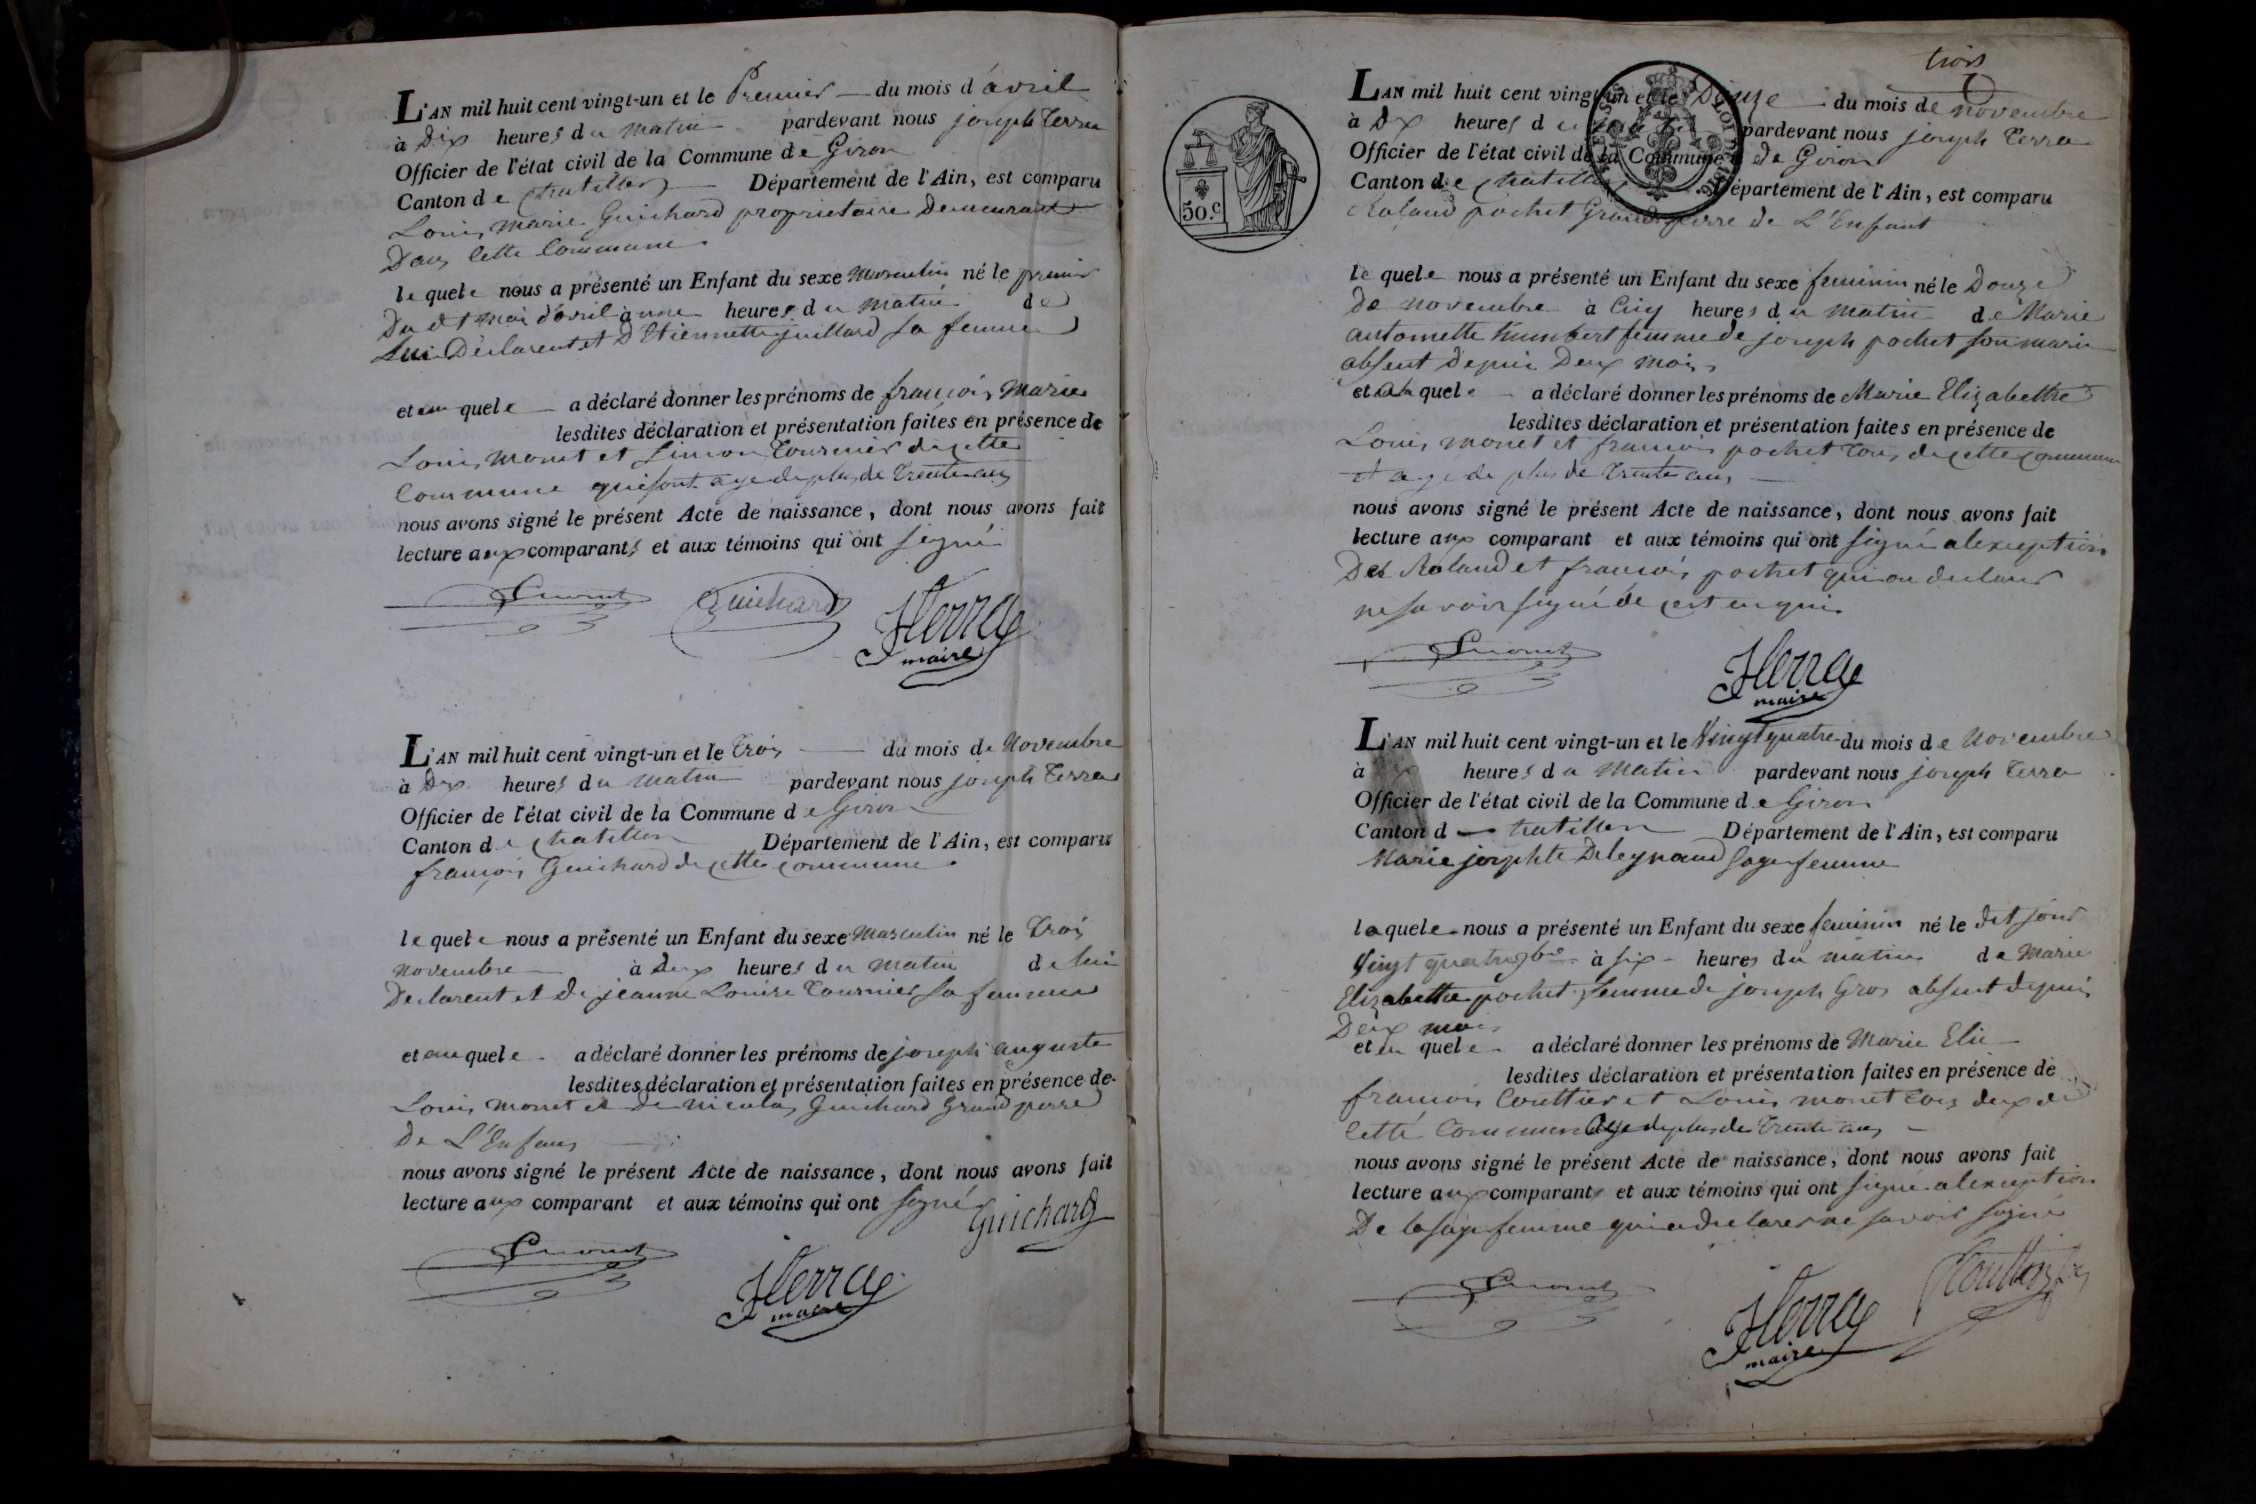 L'AN mil huit cent vingt-un et le Premier du mois d'avril
à Dix heures du matin pardevant nous joseph Terra
Officier de l'état civil de la Commune de Giron
Canton de Chatillon Département de l'Ain, est comparu
Louis marie Guichard proprietaire Demeurant
Dans Cette Commune
le quele nous a présenté un Enfant du sexe Masculin né le premier
Du dt mois d'avril à une heures du matin de
Lui Déclarent et D'Etiennette juillard sa femme
et au quele a déclaré donner les prénoms de françois Marie
lesdites déclaration et présentation faites en présence de
Louis monet et Simon Tournier de cette
Commune qui sont age de plus de Trente ans
nous avons signé le présent Acte de naissance, dont nous avons fait
lecture aux comparants et aux témoins qui ont signé
Lmonet Guichard JTerra
maire
L'AN mil huit cent vingt-un et le Trois du mois de Novembre
à Dix heures du matin pardevant nous joseph Terra
Officier de l'état civil de la Commune de Giron
Canton de Chatillon Département de l'Ain, est comparu
françois Guichard de cette commune
le quele nous a présenté un Enfant du sexe Masculin né le Trois
novembre à deux heures du matin de lui
Declarent et de jeanne Louise Tournier sa femme
et au quele a déclaré donner les prénoms de joseph auguste
lesdites déclaration et présentation faites en présence de
Louis monet et de nicolas Guichard Grand perre
De L'Enfans
nous avons signé le présent Acte de naissance, dont nous avons fait
lecture aux comparant et aux témoins qui ont signé
Guichard
Lmonet JTerra
maire
trois
L'AN mil huit cent vingt-un et le Douze du mois de novembre
à Dix heures du pardevant nous joseph Terra
Officier de l'état civil de la Commune de Giron
Canton de Chatillon Département de l'Ain, est comparu
50.c
Roland pochet Grand perre de L'Enfant
le quele nous a présenté un Enfant du sexe feminin né le Douze
De novembre à Cinq heures du matin de Marie
antoinette humbert femme de joseph pochet son marie
absent Depuis Deux mois
et a la quele a déclaré donner les prénoms de Marie Elizabethe
lesdites déclaration et présentation faites en présence de
Louis monet et francois pochet Tous de cette commune
et age de plus de Trente ans
nous avons signé le présent Acte de naissance, dont nous avons fait
lecture aux comparant et aux témoins qui ont signé a lexception
Des Roland et francois pochet qui on declaré
ne savoir signé de cest enquis
Lmonet JTerra
maire
L'AN mil huit cent vingt-un et le Vingt quatre du mois de Novembre
à heures du Matin pardevant nous joseph Terra
Officier de l'état civil de la Commune de Giron
Canton d Chatillon Département de l'Ain, est comparu
Marie josephte Deleynaud sage femme
la quele nous a présenté un Enfant du sexe feminin né le dit jour
Vingt quatre 9bre à six heures du matin de Marie
Elizabethe pochet femme de joseph Gros absent depuis
Deux mois
et a quele a déclaré donner les prénoms de Marie Elie
lesdites déclaration et présentation faites en présence de
francois Couttier et Louis monet Tous deux de
Cette Commune age de plus de Trente ans
nous avons signé le présent Acte de naissance, dont nous avons fait
lecture aux comparants et aux témoins qui ont signé a lexception
De la sage femme qui a declarer ne savoir signé
Lmonet JTerra
maire